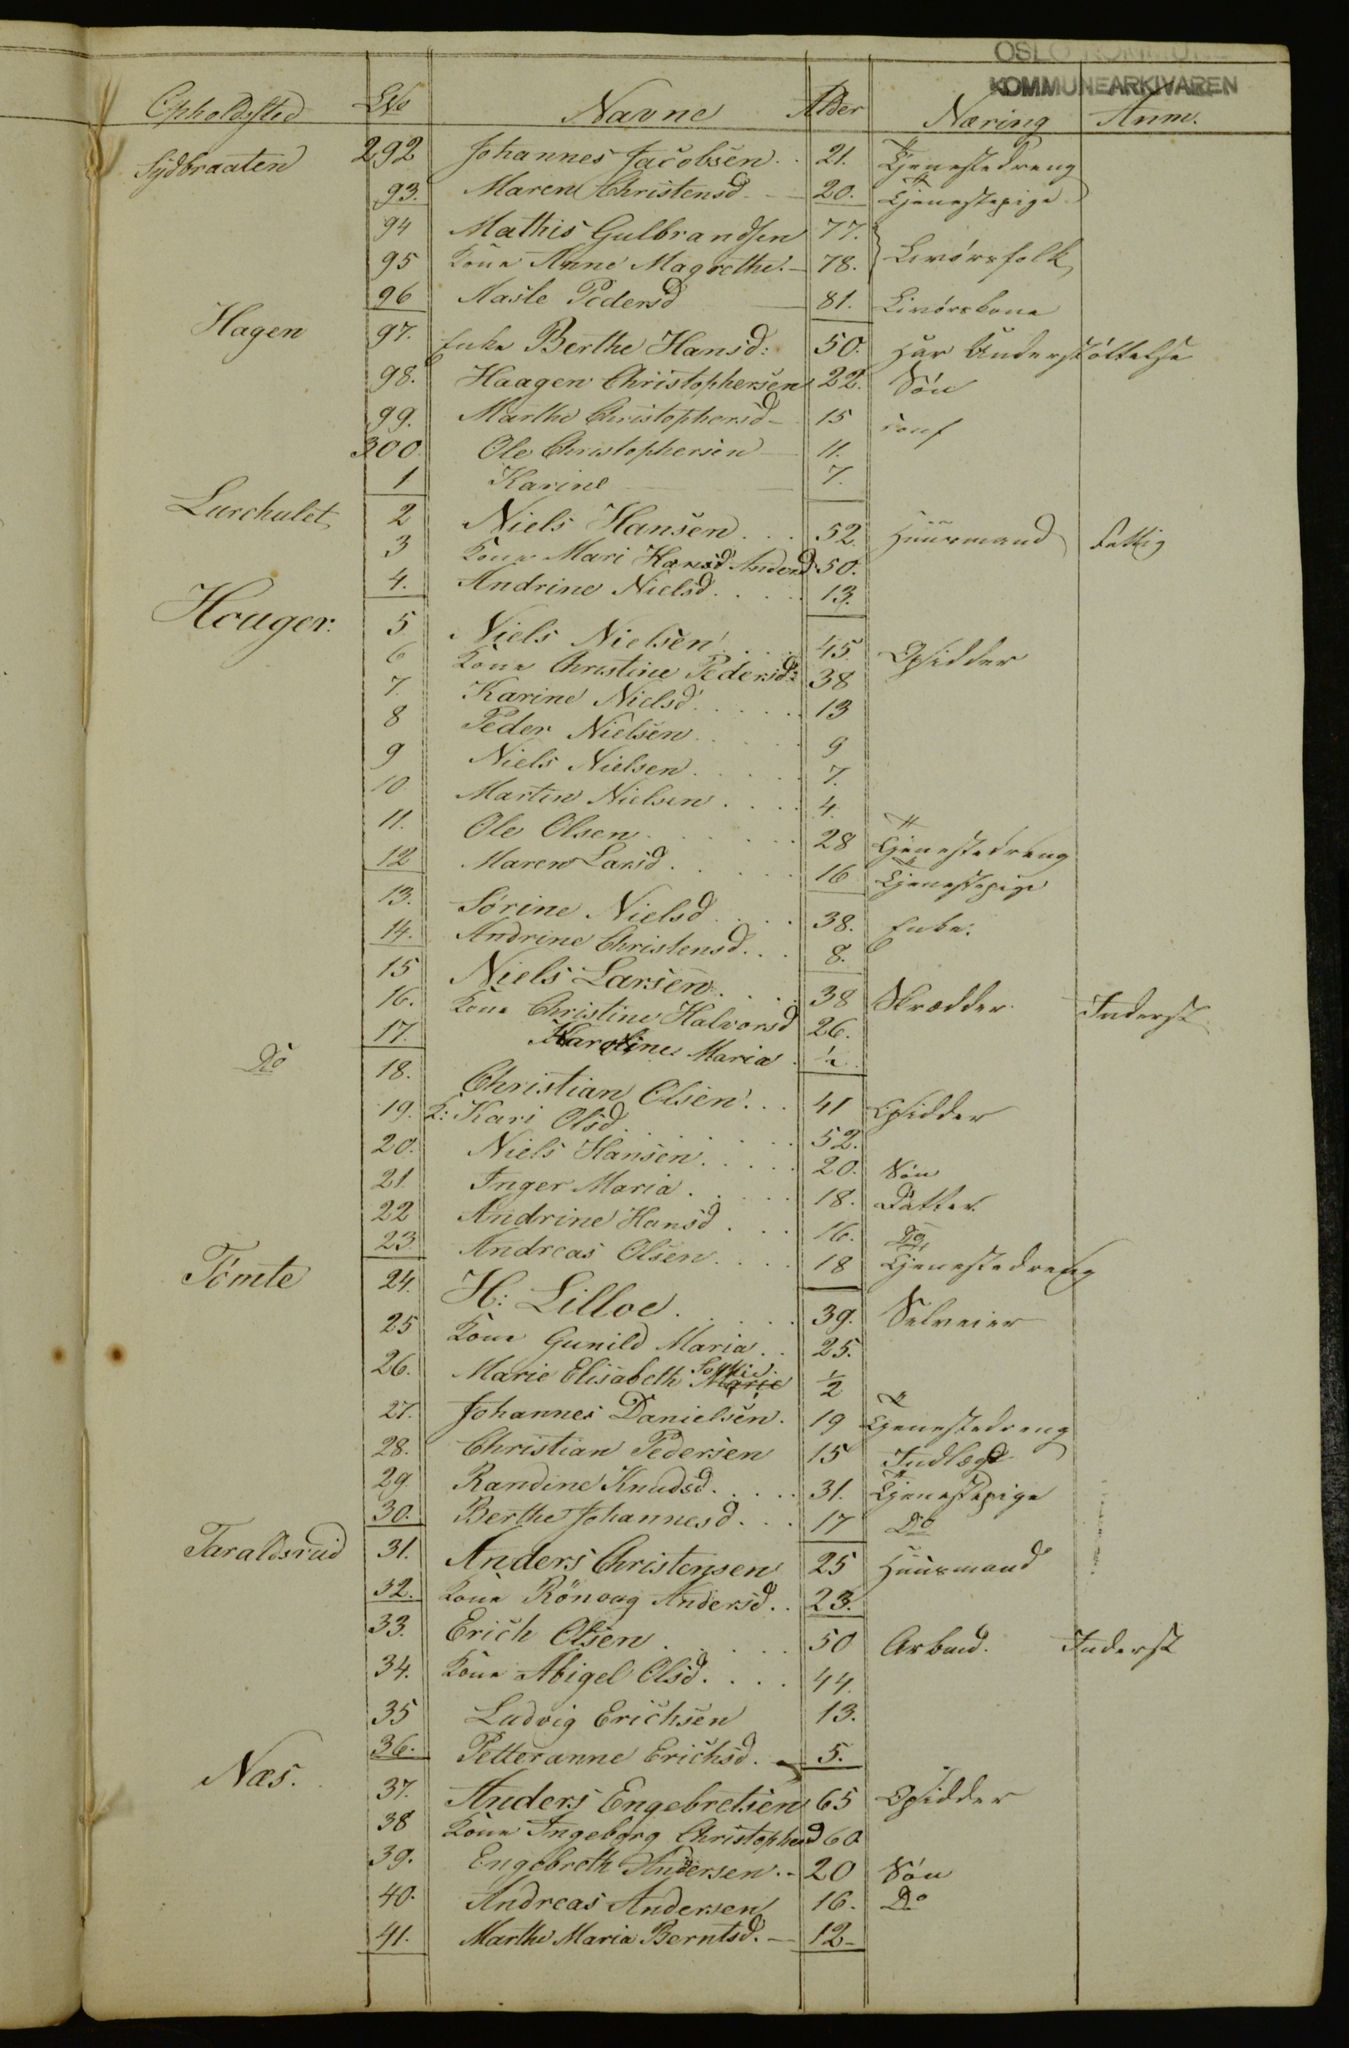 OSLO KOMMUNE
KOMMUNEARKIVAREN
Opholdsted No Navne Alder Næring Anm.
Sydbraaten 292 Johannes Jacobsen . . 21. Tjenestedreng
93. Maren Christensd. — 20. Tjenestepige
94 Mathis Gulbrandsen 77. } Livørsfolk
95 Kone Anne Magrethe. — 78.
96 Aasle Pedersd — 81. Livørskone
Hagen 97. Enke Berthe Hansd: 50. Har Understøttelse
98. Haagen Christophersen 22. Søn
99. Marthe Christophersd — 15 conf
300 Ole Christophersen — 11.
1 Karine — 7.
Lurehulet 2 Niels Hansen . . . 52 Huusmand fattig
3 Kone Mari Hansd Andersd 50.
4. Andrine Nielsd . . . . 13.
Houger. 5 Niels Nielsen . . . 45. Opsidder
6 Kone Christine Pedersd: 38
7. Karine Nielsd . . . . . 13
8 Peder Nielsen . . . . 9
9 Niels Nielsen . . . . . 7.
10 Martin Nielsen . . . . 4.
11. Ole Olsen . . . . . . 28 Tjenestedreng
12 Maren Larsd . . . . . 16 Tjenestepige
13. Sørine Nielsd . . . . 38. Enke.
14. Andrine Christensd . . . 8.
15 Niels Larsen . . . . 38 Skrædder Inderst
16. Kone Christine Halvorsd 26.
17. Karoline Maria . ½
Do 18. Christian Olsen . . . 41 Opsidder
19. K: Kari Olsd . . . . . . 52.
20. Niels Hansen . . . . . 20. Søn
21 Inger Maria . . . . . 18. Datter
22 Andrine Hansd . . . 16. Do
23. Andreas Olsen . . . . 18 Tjenestedreng
Tømte 24. H: Lilloe . . . . . 39. Selveier
25 Kone Gunild Maria . . 25.
26. Marie Elisabeth Sophie. Marie ½
27. Johannes Danielsen . 19 Tjenestedreng
28. Christian Pedersen 15 Indlægd
29. Randine Knudsd . . . . 31. Tjenestepige
30. Berthe Johannesd . . . 17 Do
Taraldsrud 31. Anders Christensen 25 Huusmand
32. Kone Rönoug Andersd . . 23.
33. Erich Olsen . . . . . 50 Arbmd. Inderst
34. Kone Abigel Olsd . . . . 44.
35 Ludvig Erichsen 13.
36. Petteranne Erichsd. — 5.
Næs. 37. Anders Engebretsen 65 Opsidder
38 Kone Ingeborg Christophersd 60
39. Engebreth Andersen . - 20 Søn
40. Andreas Andersen 16. Do
41. Marthe Maria Berntsd. — 12 -